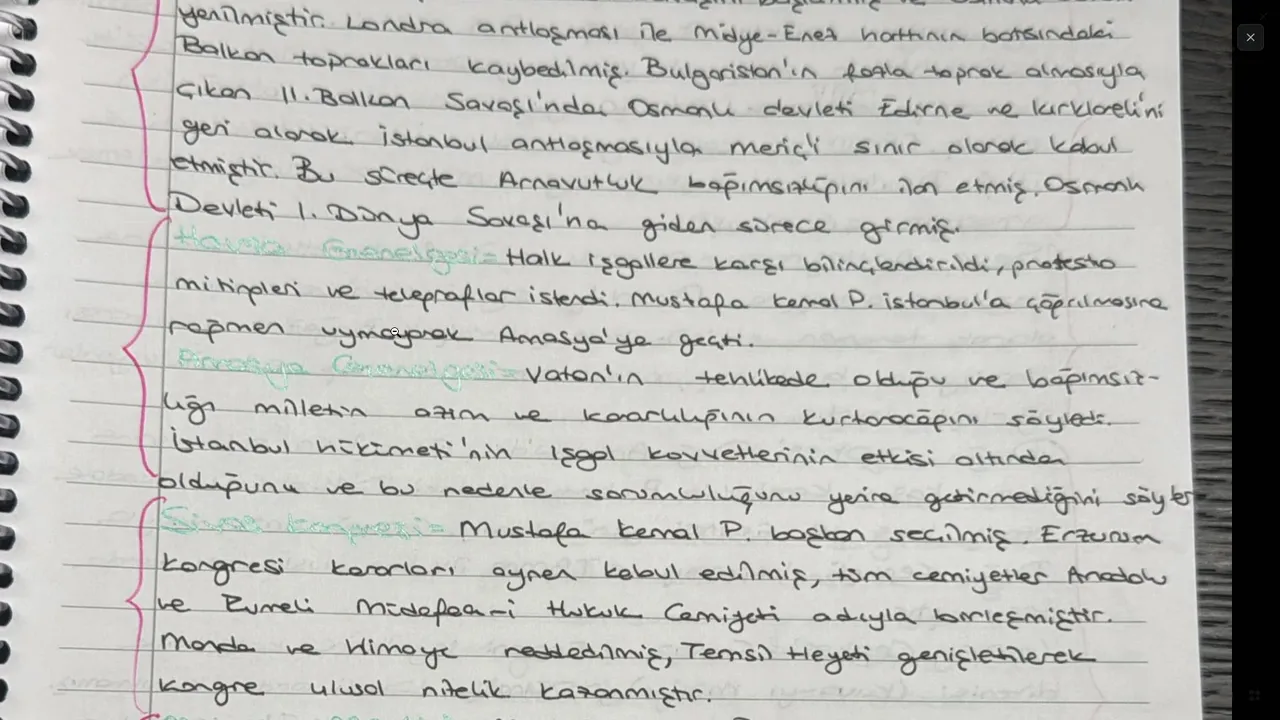 yenilmiştir. Londra antlaşması ile Midye-Enez hattının batısındaki
Balkan toprakları kaybedilmiş. Bulgaristan'ın fazla toprak almasıyla
Çıkan II. Balkan Savaşı'nda Osmanlı devleti Edirne ve Kırklareli'ni
geri alarak istanbul antlaşmasıyla meriç'i sınır olarak kabul
etmiştir. Bu süreçte Arnavutluk bağımsızlığını ilan etmiş. Osmanlı
Devleti 1. Dünya Savaşı'na giden sürece girmiş.
Havza Genelgesi= Halk işgallere karşı bilinçlendirildi, protesto
mitingleri ve telegraflar istendi. Mustafa Kemal P. istanbul'a çağrılmasına
rağmen uymayarak Amasya'ya geçti.
Amasya Genelgesi= Vatan'ın tehlikede olduğu ve bağımsız-
lığı milletin azım ve kararlılığının kurtaracağını söyledi.
İstanbul hükümeti'nin işgal kuvvetlerinin etkisi altından
olduğunu ve bu nedenle sorumluluğunu yerine getirmediğini söyler
Sivas kongresi= Mustafa Kemal P. başkan seçilmiş. Erzurum
Kongresi kararları aynen kabul edilmiş, tüm cemiyetler Anadolu
ve Rumeli Müdafaa-i Hukuk Cemiyeti adıyla birleşmiştir.
Manda ve Himaye reddedilmiş, Temsil Heyeti genişletilerek
kongre ulusal nitelik kazanmıştır.